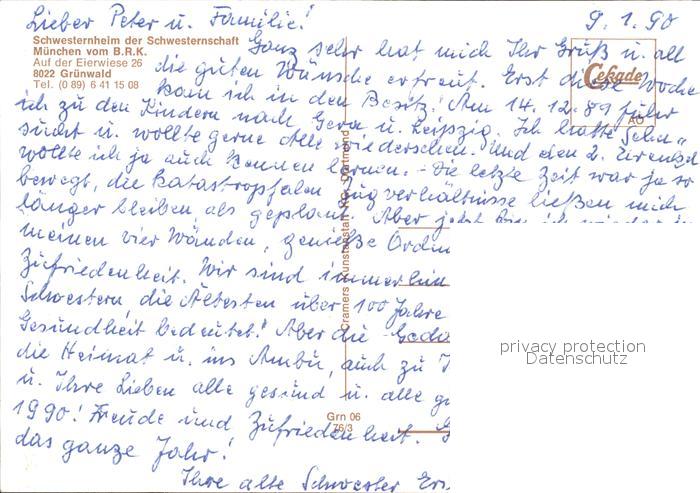 Lieber Peter u. Familie! 9.1.90
Schwesternheim der Schwesternschaft
München vom B.R.K.
Auf der Eierwiese 26
8022 Grünwald
Tel. (0 89) 6 41 15 08
Cekade
AO
Ganz sehr hat mich Ihr Gruß u. all
die guten Wünsche erfreut. Erst diese Woche
kam ich in den Besitz! Am 14.12.89 fuhr
ich zu den Kindern nach Gera u. Leipzig. Ich hatte Sehn-
sucht u. wollte gerne Alle wiedersehen. Und den 2. Urenkel
wollte ich ja auch kennen lernen. - Die letzte Zeit war ja so
bewegt, die katastrophalen Zugverhältnisse ließen mich
länger bleiben, als geplant. Aber jetzt bin ich wieder in
meinen vier Wänden, genieße Ordn
Zufriedenheit. Wir sind immerhin
Schwestern die Ältesten über 100 Jahre
Gesundheit bedeutet! Aber die Geda
die Heimat u. ins Ambu, auch zu
u. Ihre Lieben alle gesund u. alle g
1990! Freude und Zufriedenheit. G
das ganze Jahr!
Ihre alte Schwester
Cramers Kunstanstalt KG, Dortmund
Grn 06
76/3
privacy protection
Datenschutz